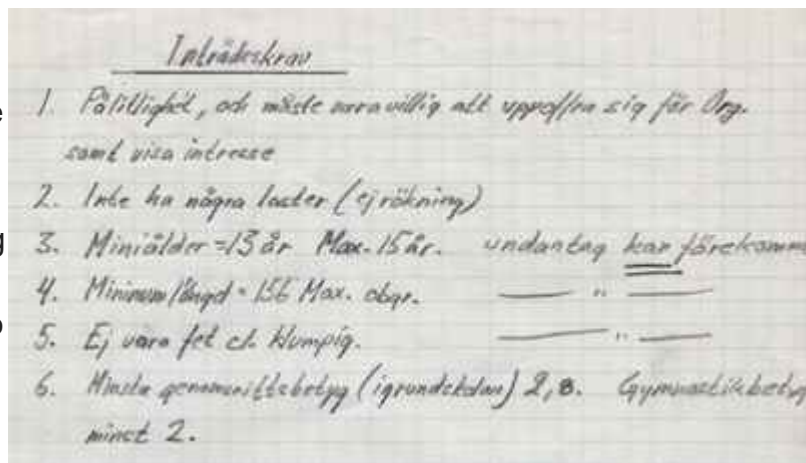 Inträdeskrav
1. Pålitlighet, och måste vara villig att uppoffra sig för Org.
samt visa intresse
2. Inte ha några laster (ej rökning)
3. Miniålder = 13 år Max. 15 år. undantag kan förekomma
4. Minimum längd = 156 Max. obgr. — " —
5. Ej vara fet el. klumpig. — " —
6. Minsta genomsnittsbetyg (i grundskolan) 2,8. Gymnastikbetyg
minst 2.